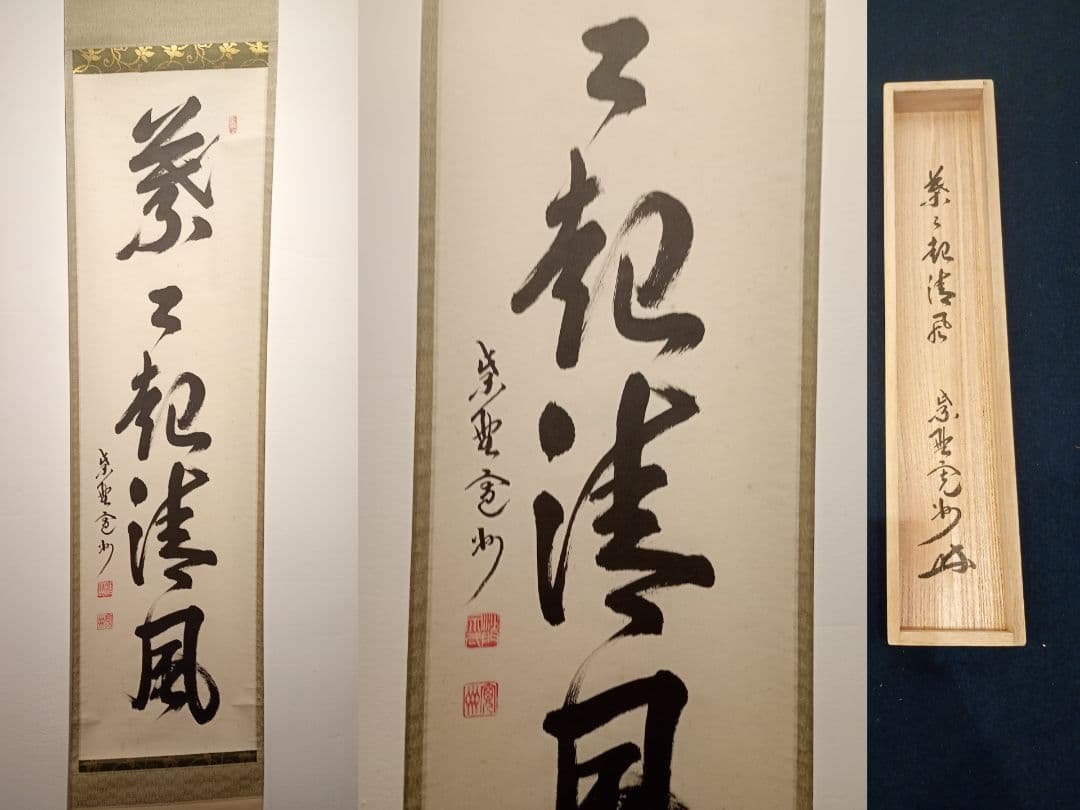 葉々起清風
紫野寛州
々起清風
紫野寛州
葉々起清風
紫野寛州